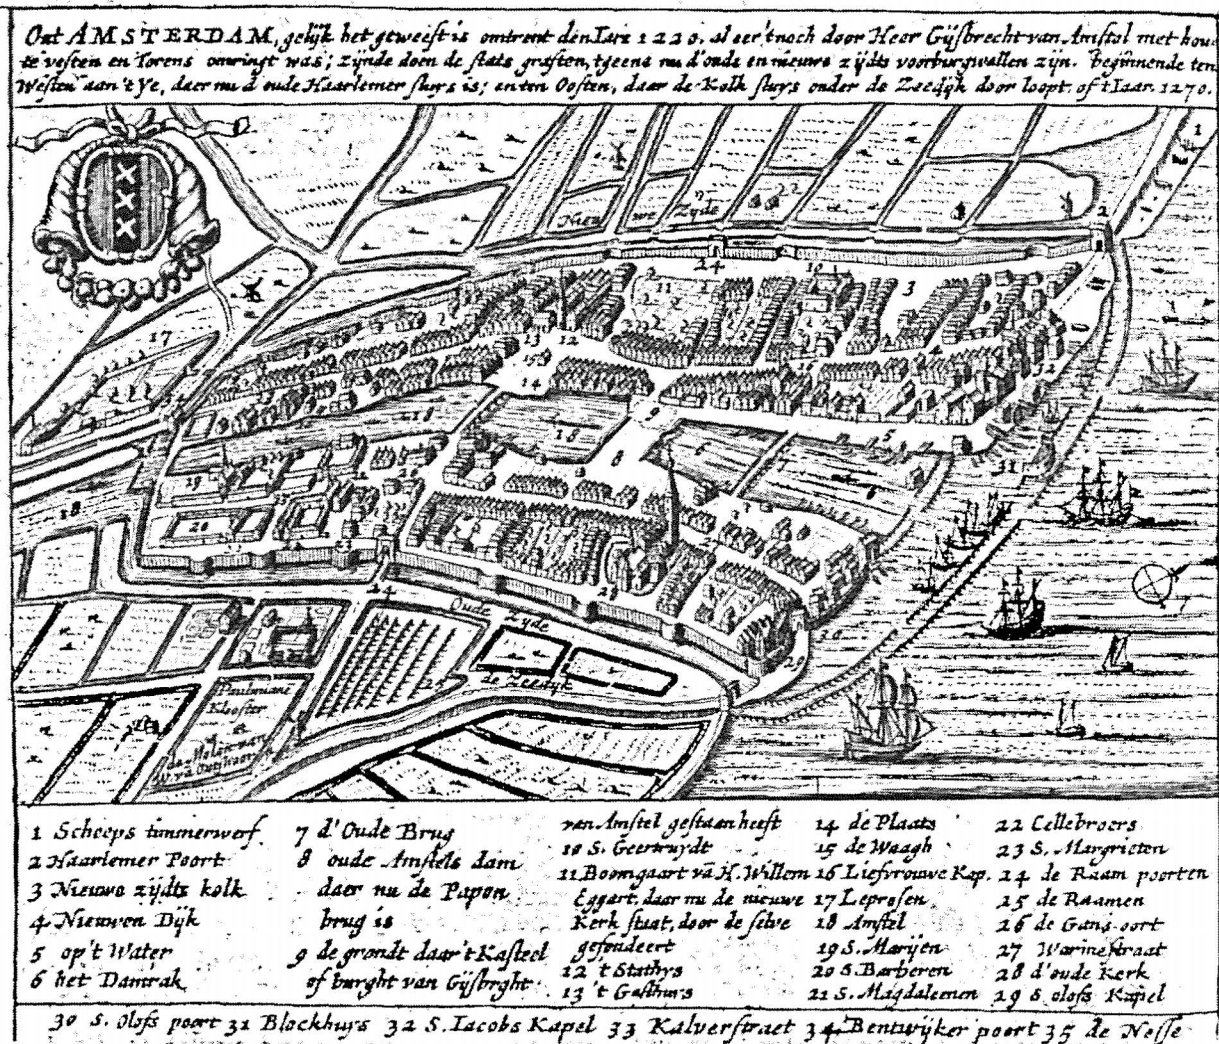 Out AMSTERDAM, gelijk het geweest is omtrent den Iare 1220. al eer 't noch door Heer Gijsbrecht van Amstel met hou
te vesten en Torens omringt was; zijnde doen de stats graften, tgeene nu d'oude en nieuwe zijdts voorburgwallen zijn. beginnende ten
Westen aan 't Ye, daer nu d oude Haarlemer sluys is; en ten Oosten, daar de Kolk sluys onder de Zeedijk door loopt. of t Iaar. 1270.
Nieu we Zyde
Oude
Zyde
de Zeedyk
Pauliniane
Klooster
de Molen van
1 Scheeps timmerwerf
2 Haarlemer Poort
3 Nieuwe zijdts kolk
4 Nieuwen Dijk
5 op't Water
6 het Damrak
7 d'Oude Brug
8 oude Amstels dam
daer nu de Papen
brug is
9 de grondt daar't Kasteel
of burght van Gijsbrght
van Amstel gestaan heeft
10 S. Geertruydt
11 Boomgaart vā H. Willem
Eggart, daar nu de nieuwe
Kerk staat, door de selve
gefondeert
12 t Stathys
13 't Gasthuis
14 de Plaats
15 de Waagh
16 Liefvrouwe Kap.
17 Leprosen
18 Amstel
19 S. Marijen
20 S. Barberen
21 S. Magdaleenen
22 Cellebroers
23 S. Margrieten
24 de Raam poorten
25 de Raamen
26 de Gans oort
27 Warmestraat
28 d'oude Kerk
29 S olofs Kapel
30 S. Olofs poort 31 Blockhuys 32 S. Iacobs Kapel 33 Kalverstraet 34 Bentwijker poort 35 de Nesse